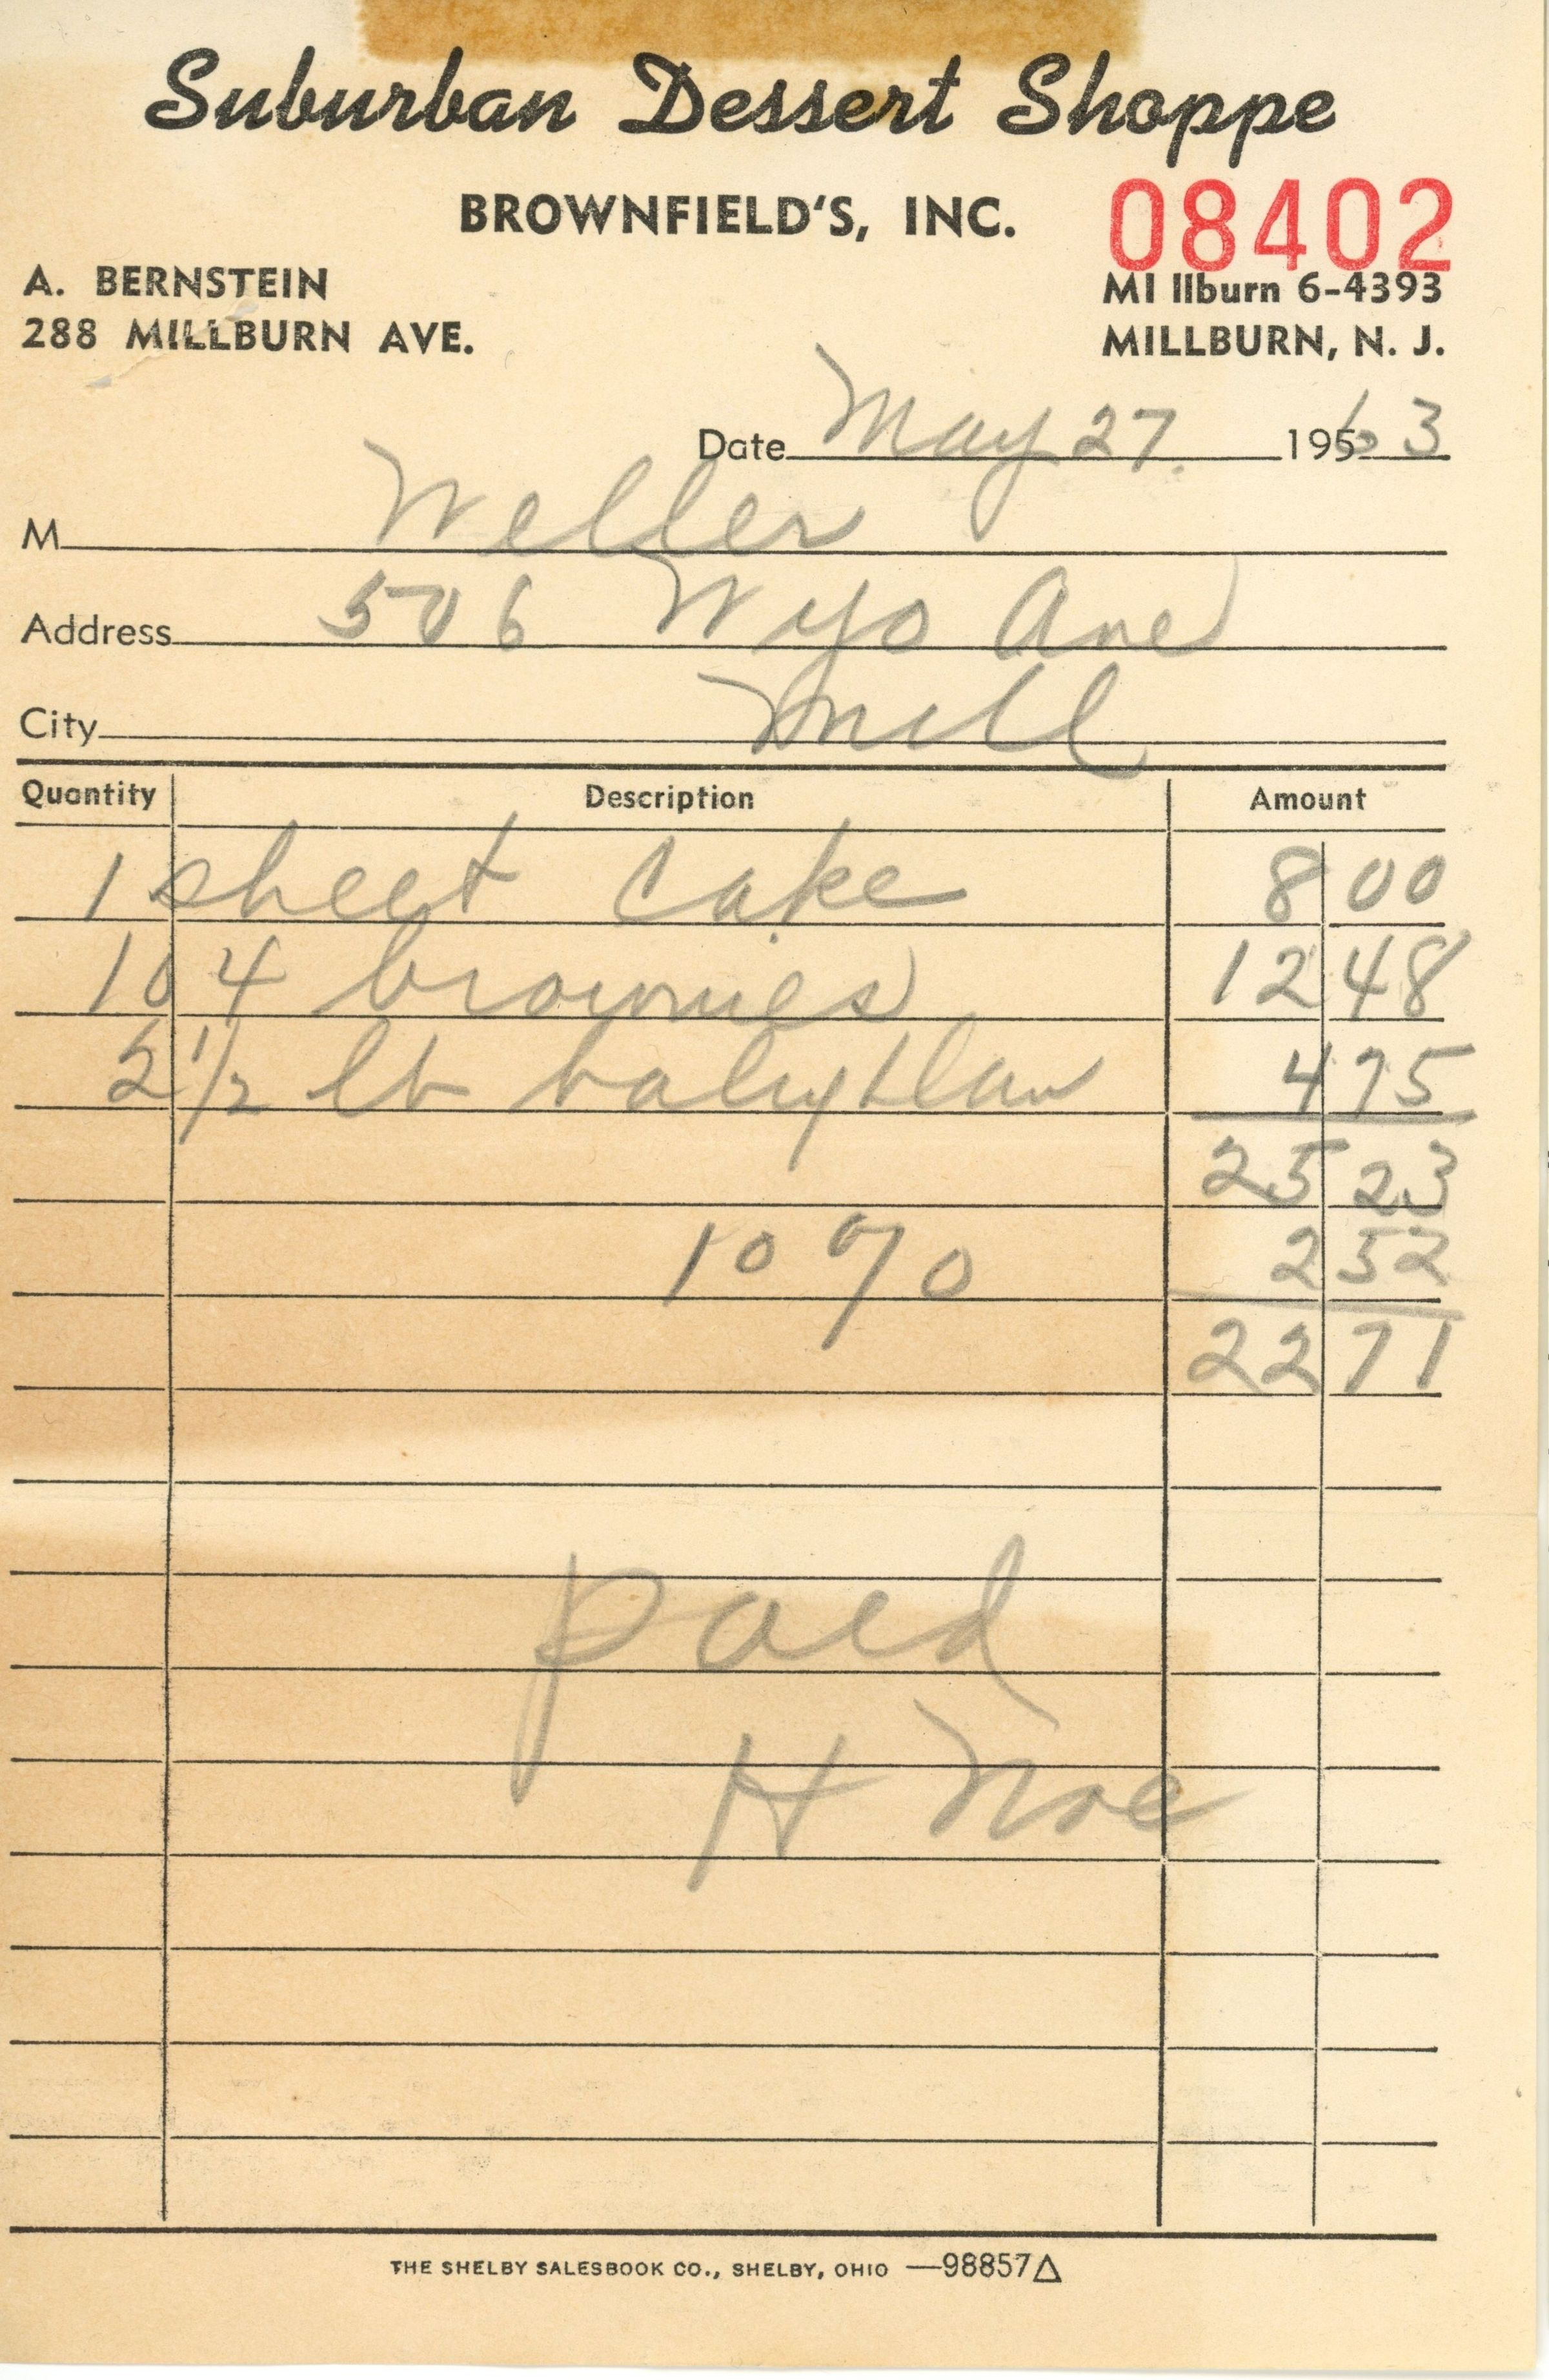 Suburban Dessert Shoppe
BROWNFIELD'S, INC.
08402
A. BERNSTEIN
MI llburn 6-4393
288 MILLBURN AVE.
MILLBURN, N. J.
Date May 27. 1963
M Weller
Address 506 Wyo Ave
City Mill
Quantity Description Amount
1 sheet cake 8 00
104 brownies 12 48
2 1/2 lb 4 75
25 23
10 % 2 52
22 71
Paid
H Noe
THE SHELBY SALESBOOK CO., SHELBY, OHIO —98857△